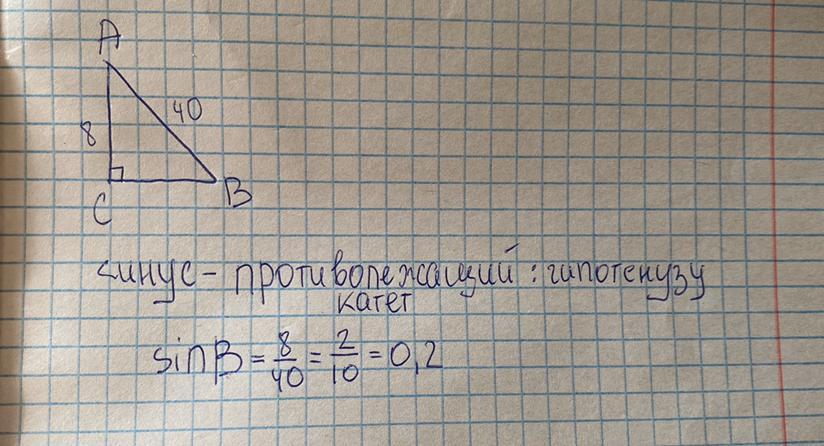 A
40
8
C
B
синус - противолежащий : гипотенузу
катет
sin B = 8/40 = 2/10 = 0,2